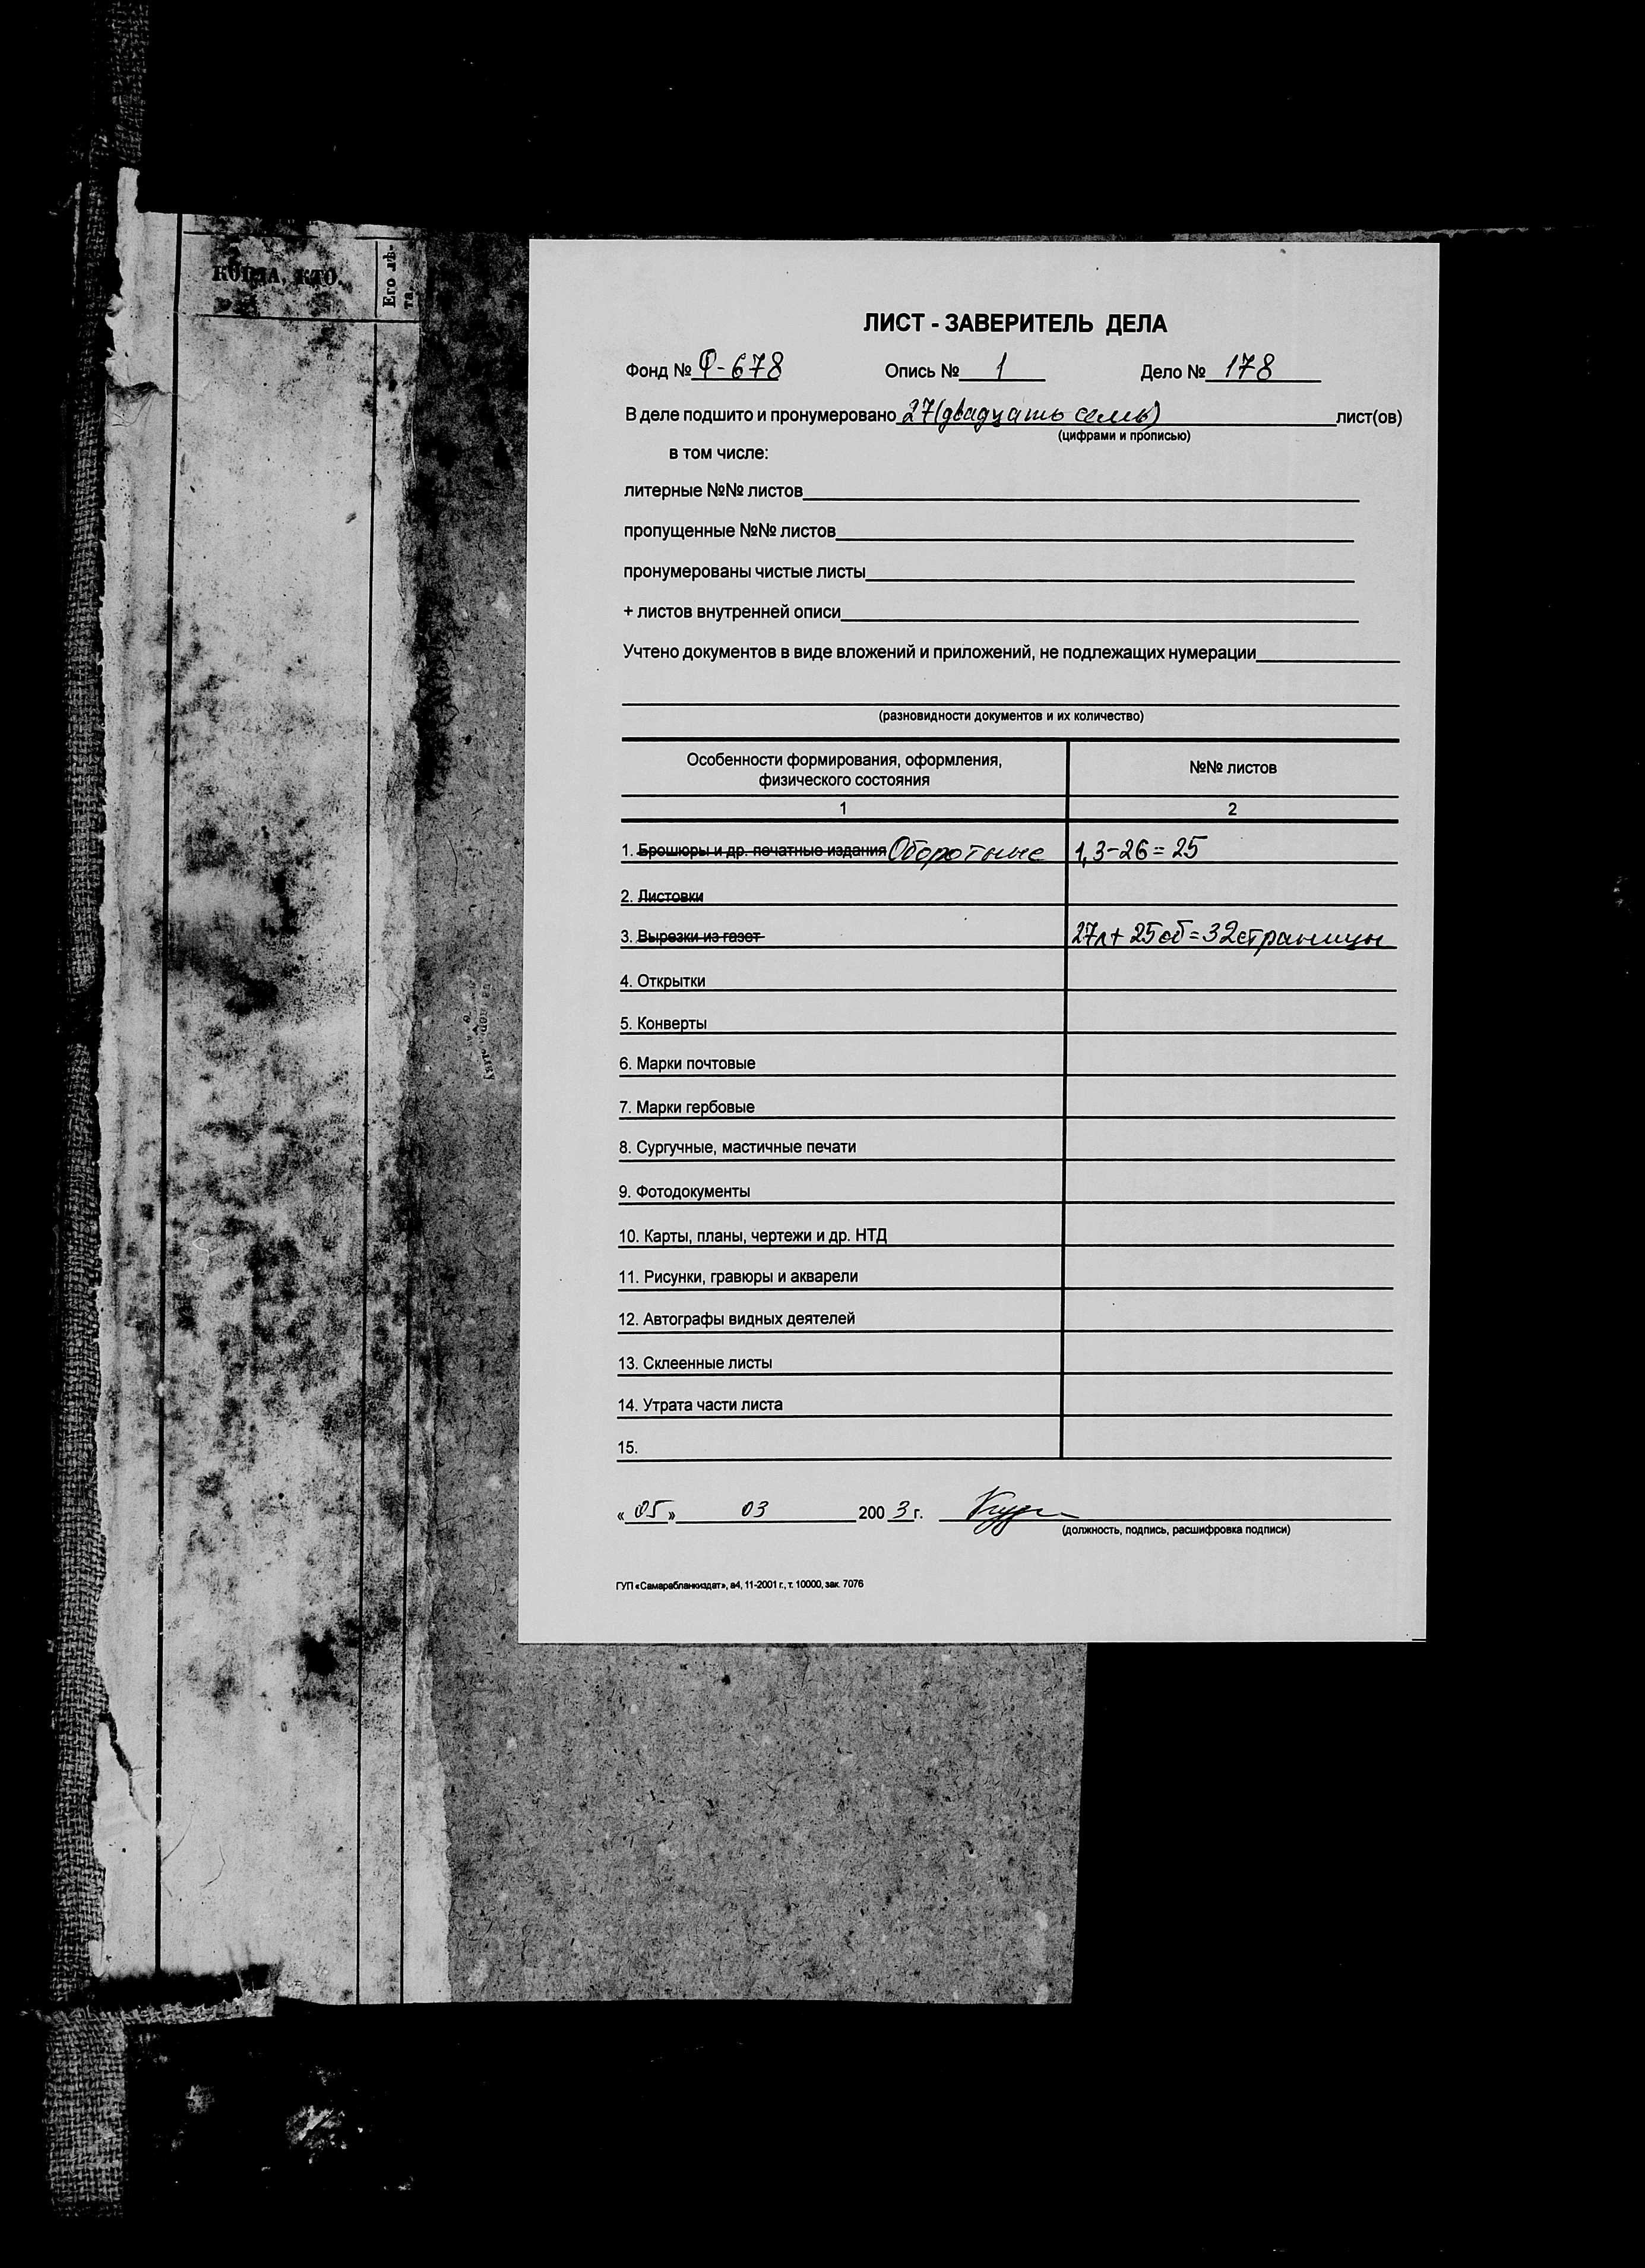 КОГДА, КТО.
Его лѣ-
та.
ЛИСТ - ЗАВЕРИТЕЛЬ ДЕЛА
Фонд № Ф-678 Опись № 1 Дело № 178
В деле подшито и пронумеровано 27 (двадцать семь) лист(ов)
(цифрами и прописью)
в том числе:
литерные №№ листов
пропущенные №№ листов
пронумерованы чистые листы
+ листов внутренней описи
Учтено документов в виде вложений и приложений, не подлежащих нумерации
(разновидности документов и их количество)
Особенности формирования, оформления,
физического состояния
№№ листов
1 2
1. Брошюры и др. печатные издания Оборотные 1, 3-26 = 25
2. Листовки
3. Вырезки из газет 27л + 25об = 32страницы
4. Открытки
5. Конверты
6. Марки почтовые
7. Марки гербовые
8. Сургучные, мастичные печати
9. Фотодокументы
10. Карты, планы, чертежи и др. НТД
11. Рисунки, гравюры и акварели
12. Автографы видных деятелей
13. Склеенные листы
14. Утрата части листа
15.
« 05 » 03 200 3 г.
(должность, подпись, расшифровка подписи)
ГУП «Самарабланкиздат», а4, 11-2001 г., т. 10000, зак. 7076